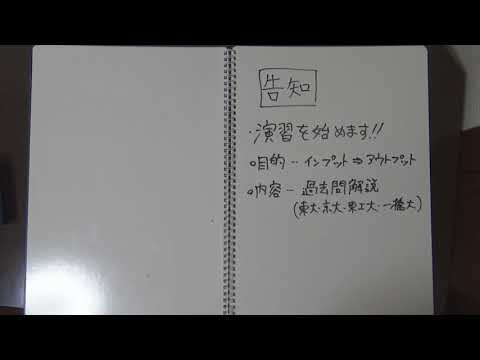 告知
・演習を始めます!!
○目的 ‥ インプット ⇒ アウトプット
○内容 ‥ 過去問解説
(東大・京大・東工大・一橋大)